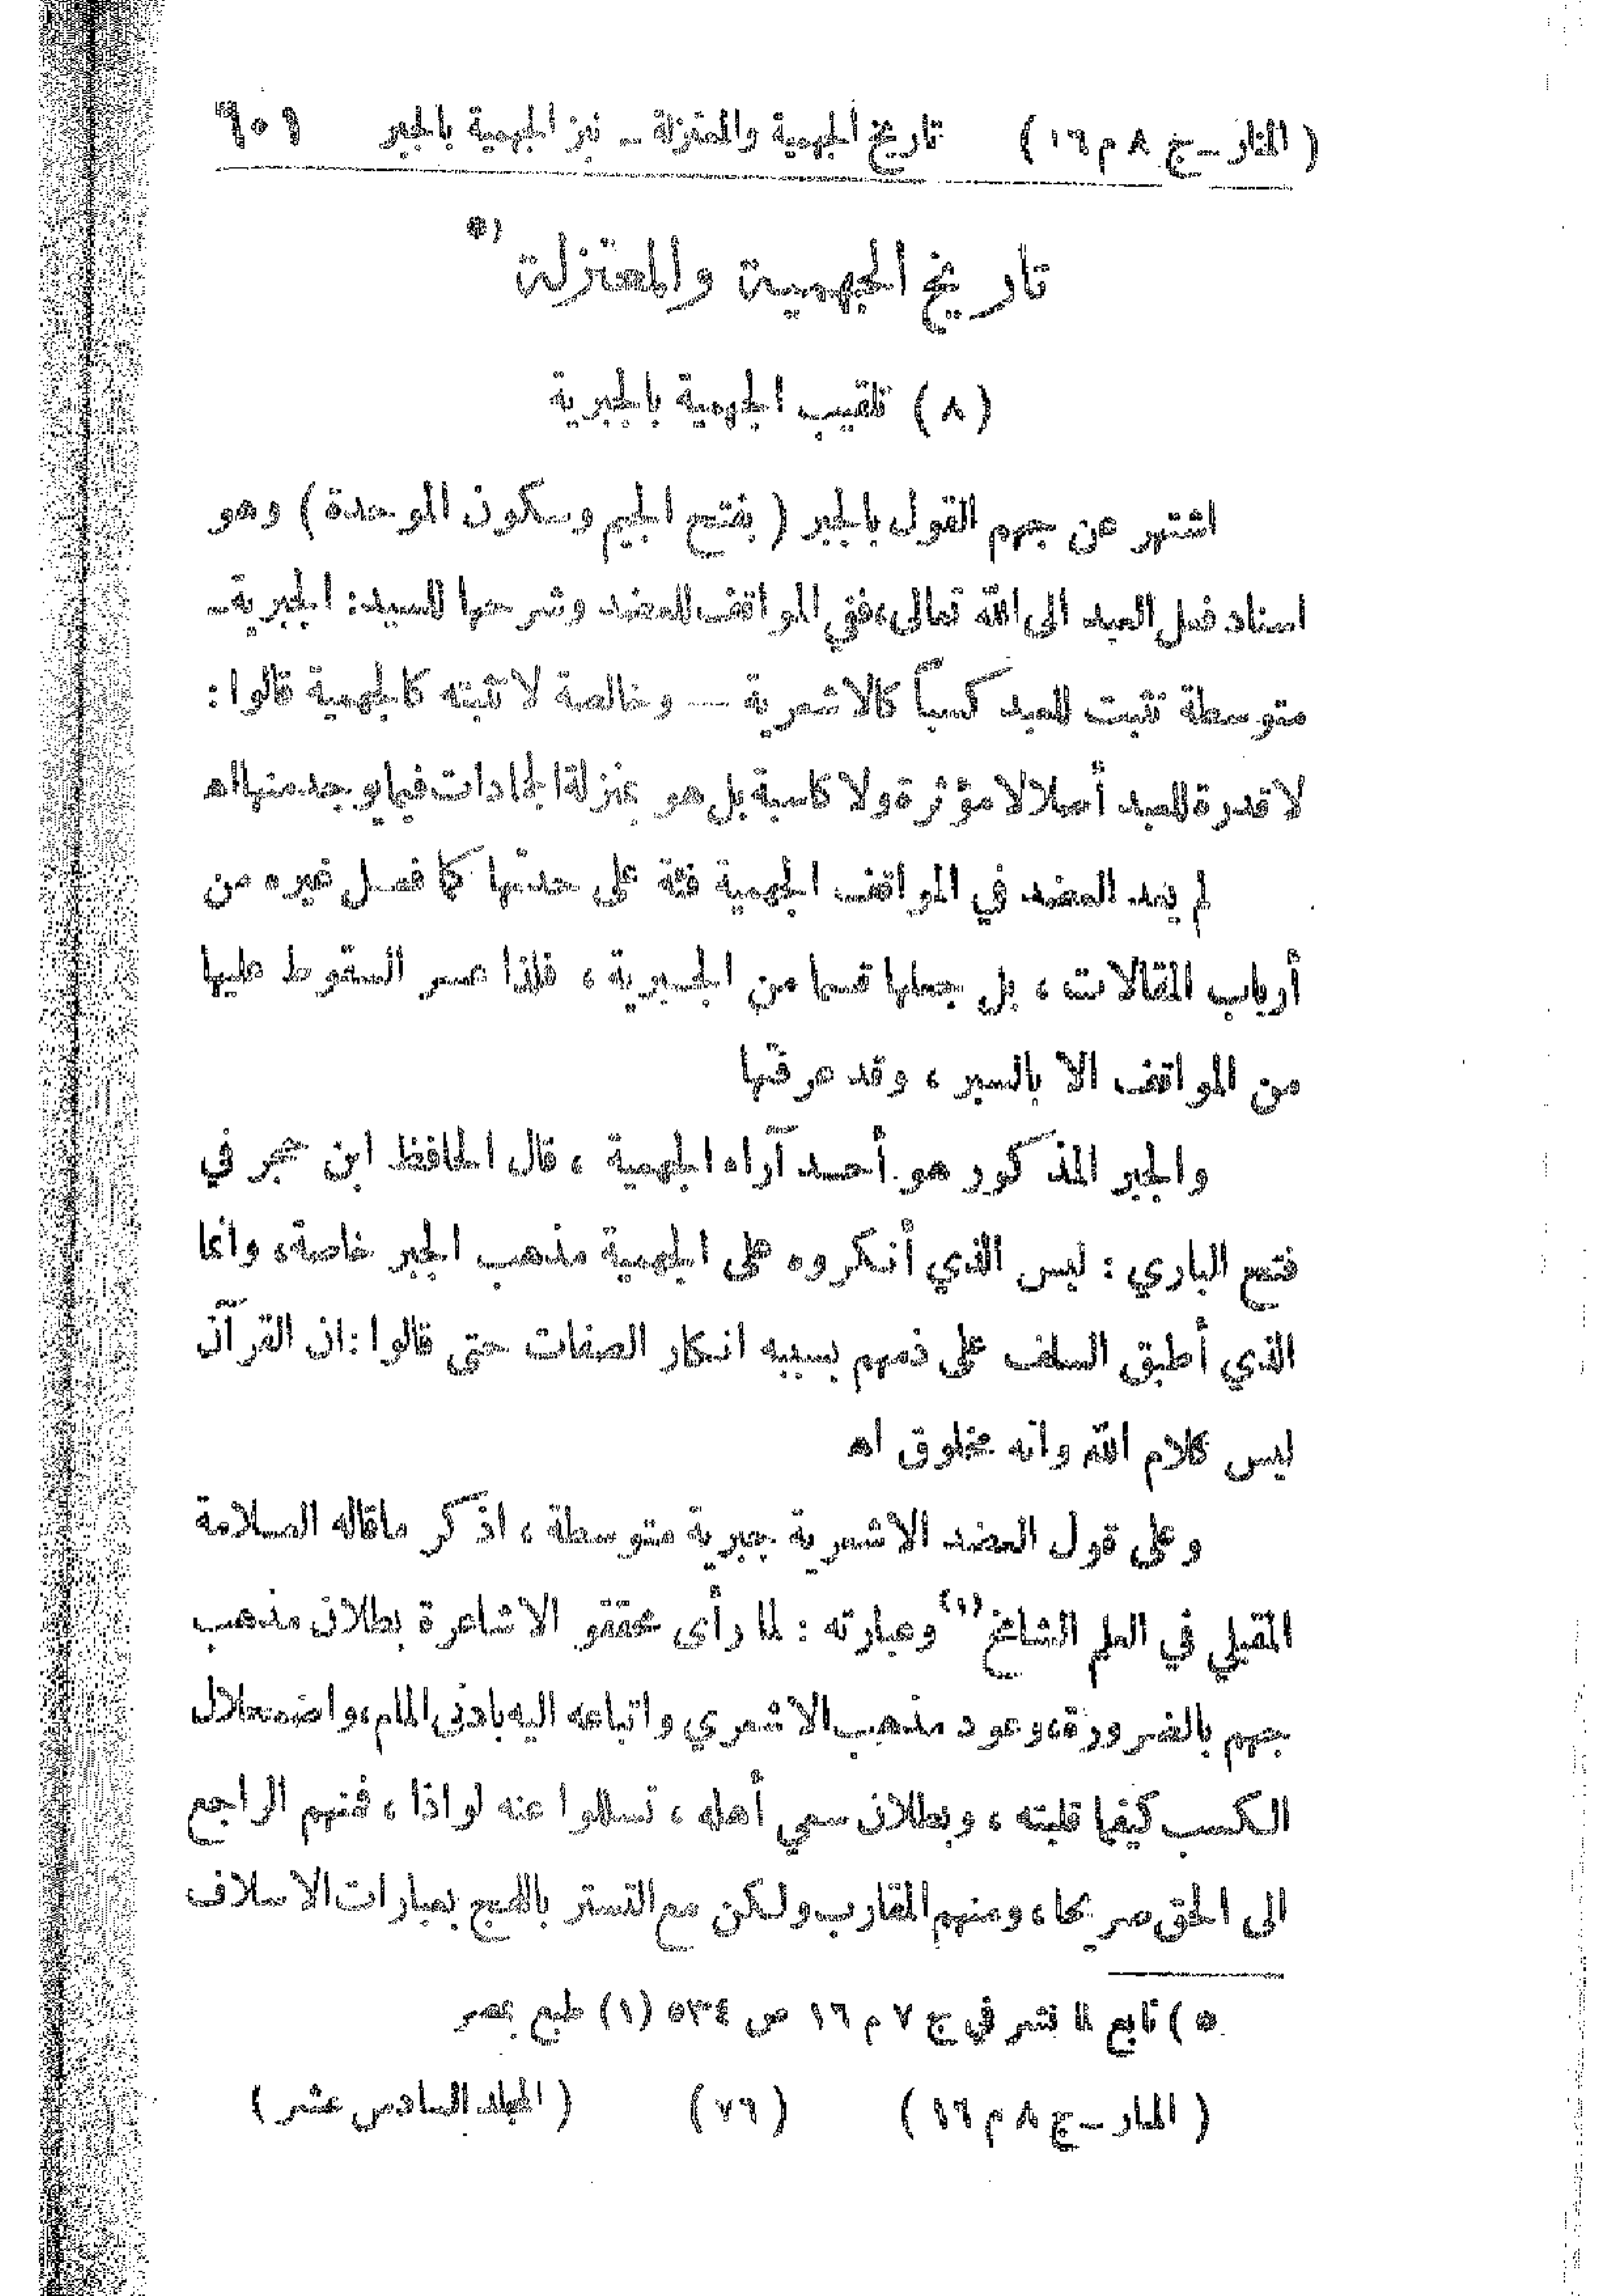 ( المنار ـ ج ٨ م ١٦ ) تاريخ الجهمية والمعتزلة ـ نبز الجهمية بالجبر ٦٠١
تاريخ الجهمية والمعتزلة *)
( ٨ ) تلقيب الجهمية بالجبرية
اشتهر عن جهم القول بالجبر ( بفتح الجيم وسكون الموحدة ) وهو
اسناد فعل العبد الى الله تعالى، ففي المواقف للعضد وشرحها للسيد: الجبرية ـ
متوسطة تثبت للعبد كسباً كالاشعرية — وخالصة لا تثبته كالجهمية قالوا :
لا قدرة للعبد أصلا لا مؤثرة ولا كاسبة بل هو بمنزلة الجمادات فيما يوجد منها اه
لم يعد العضد في المواقف الجهمية فئة على حدتها كما فصل غيره من
أرباب المقالات ، بل جعلها قسما من الجبرية ، فلذا عسر السقوط عليها
من المواقف الا بالسبر ، وقد عرفتها
والجبر المذكور هو أحد آراء الجهمية ، قال الحافظ ابن حجر في
فتح الباري : ليس الذي أنكروه على الجهمية مذهب الجبر خاصة، وانما
الذي أطبق السلف على ذمهم بسببه انكار الصفات حتى قالوا : ان القرآن
ليس كلام الله وانه مخلوق اه
وعلى قول العضد الاشعرية جبرية متوسطة ، اذكر ماقاله العلامة
المقبلي في العلم الشامخ (١) وعبارته : لما رأى محققو الاشاعرة بطلان مذهب
جهم بالضرورة، وعود مذهب الاشعري واتباعه اليه بادنى المام، واضمحلال
الكسب كيفما قلبته ، وبطلان سعي أهله ، تسللوا عنه لواذا ، فمنهم الراجع
الى الحق صريحا، ومنهم المقارب ولكن مع التستر باللهج بعبارات الاسلاف
* ) تابع لما نشر في ج ٧ م ١٦ ص ٥٣٤ (١) طبع بمصر
( المنار ـ ج ٨ م ١٦ ) ( ٧٦ ) ( المجلد السادس عشر )